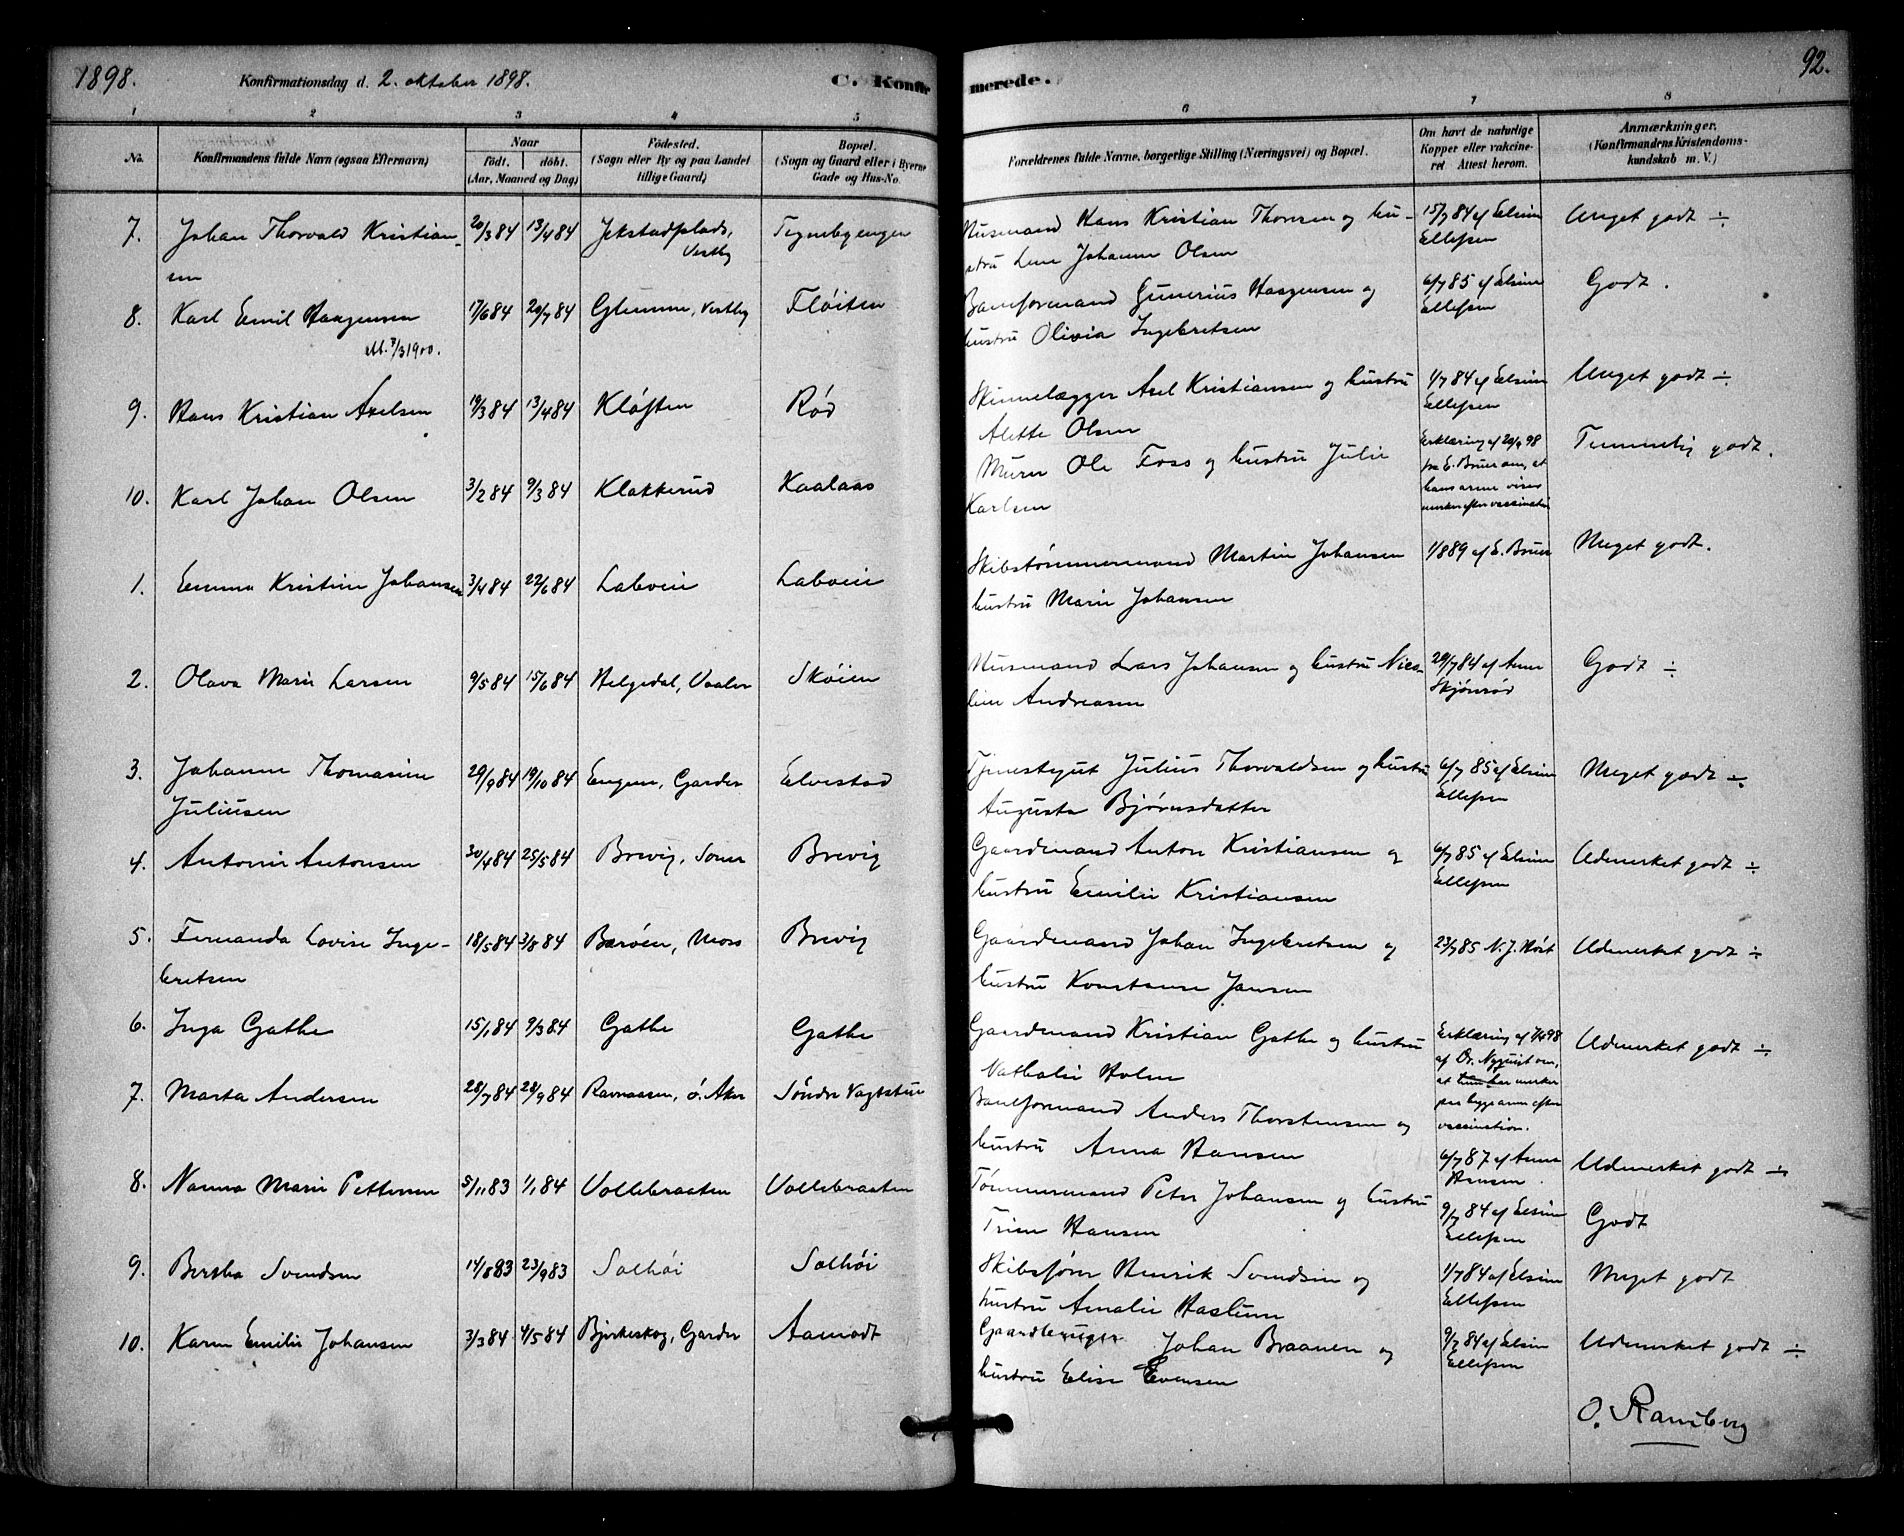 1898. Konfirmationsdag d. 2. oktober 1898. C. Konfir merede. 92.
1 2 3 4 5 6 7 8
No. Konfirmandens fulde Navn (ogsaa Efternavn) Naar født. døbt. (Aar, Maaned og Dag) Fødested. (Sogn eller By og paa Landet tillige Gaard) Bopæl. (Sogn og Gaard eller i Byerne Gade og Hus-No. Forældrenes fulde Navne, borgerlige Stilling (Næringsvei) og Bopæl. Om havt de naturlige Kopper eller vakcineret Attest herom. Anmærkninger. (Konfirmandens Kristendomskundskab m. V.)
7. Johan Thorvald Kristian- 20/3 84 13/4 84 Jekstadplads, Tegnebyengen Husmand Hans Kristian Thoresen og hu- 15/7 84 af Elsine Meget godt ÷
sen Vestby stru Lene Johanne Olsen Ellefsen
8. Karl Emil Haagensen 17/6 84 20/7 84 Glemme, Vestby Fløiten Baneformand Gunerius Haagensen og 6/7 85 af Elsine Godt.
Att. 7/3 1900. hustru Olivia Ingebretsen Ellefsen
9. Hans Kristian Axelsen 19/3 84 13/4 84 Kløften Rød Skinnelægger Axel Kristiansen og hustru 1/7 84 af Elsine Meget godt ÷
Alette Olsen Ellefsen
10. Karl Johan Olsen 3/2 84 9/3 84 Klokkerud Kaalaas Murer Ole Foss og hustru Julie Erklæring af 20/9 98 Temmelig godt.
Karlsen fra E. Bruu om, at
hans arme viser
merker efter vaccination
1. Emma Kristine Johansen 3/4 84 22/6 84 Labveie Labveie Skibstømmermand Martin Johansen 1/8 89 af E. Bruu Meget godt.
hustru Marie Johansen
2. Olava Marie Larsen 9/5 84 15/6 84 Helgedal, Vaaler Skøien Husmand Lars Johansen og hustru Nico- 29/7 84 af Anne Godt ÷
line Andreasen Skjønrød
3. Johanne Thomasine 29/9 84 19/10 84 Engen, Garder Elvestad Tjenestegut Julius Thorvaldsen og hustru 6/7 85 af Elsine Meget godt ÷
Juliusen Augusta Bjørnsdatter Ellefsen
4. Antonie Antonsen 30/4 84 25/5 84 Brevig, Soner Brevig Gaardmand Anton Kristiansen og 6/7 85 af Elsine Udmerket godt ÷
hustru Emilie Kristiansen Ellefsen
5. Fernanda Lovise Inge- 18/5 84 3/8 84 Barøen, Moss Brevig Gaardmand Johan Ingebretsen og 23/7 85 N. J. Høst Udmerket godt ÷
bretsen hustru Konstanse Jansen
6. Inga Gathe 15/1 84 9/3 84 Gathe Gathe Gaardmand Kristian Gathe og hustru Erklæring af 7/4 98 Udmerket godt ÷
Nathalie Holm af Dr. Nyquist om,
at hun har merker
paa begge arme efter
vaccination.
7. Marta Andersen 28/7 84 28/9 84 Ravnaasen, ø. Aker Søndre Vagtstue Baneformand Anders Thorstensen og
hustru Anna Hansen 6/7 87 af Anna Hansen. Udmerket godt ÷
8. Nanna Marie Pettersen 5/11 83 1/1 84 Vollebraaten Vollebraaten Tømmermand Peter Johansen og hustru 9/7 84 af Elsine Godt
Trine Hansen Ellefsen
9. Bertha Svendsen 14/8 83 23/9 83 Solhøi Solhøi Skibsfører Henrik Svendsen og 1/7 84 af Elsine Meget godt
hustru Amalie Haslum Ellefsen
10. Karen Emilie Johansen 3/3 84 4/5 84 Bjerkeskog, Garder Aamodt Gaardbruger Johan Braanen og 9/7 84 af Elsine Udmerket godt ÷
hustru Elise Evensen Ellefsen
O. Ramberg